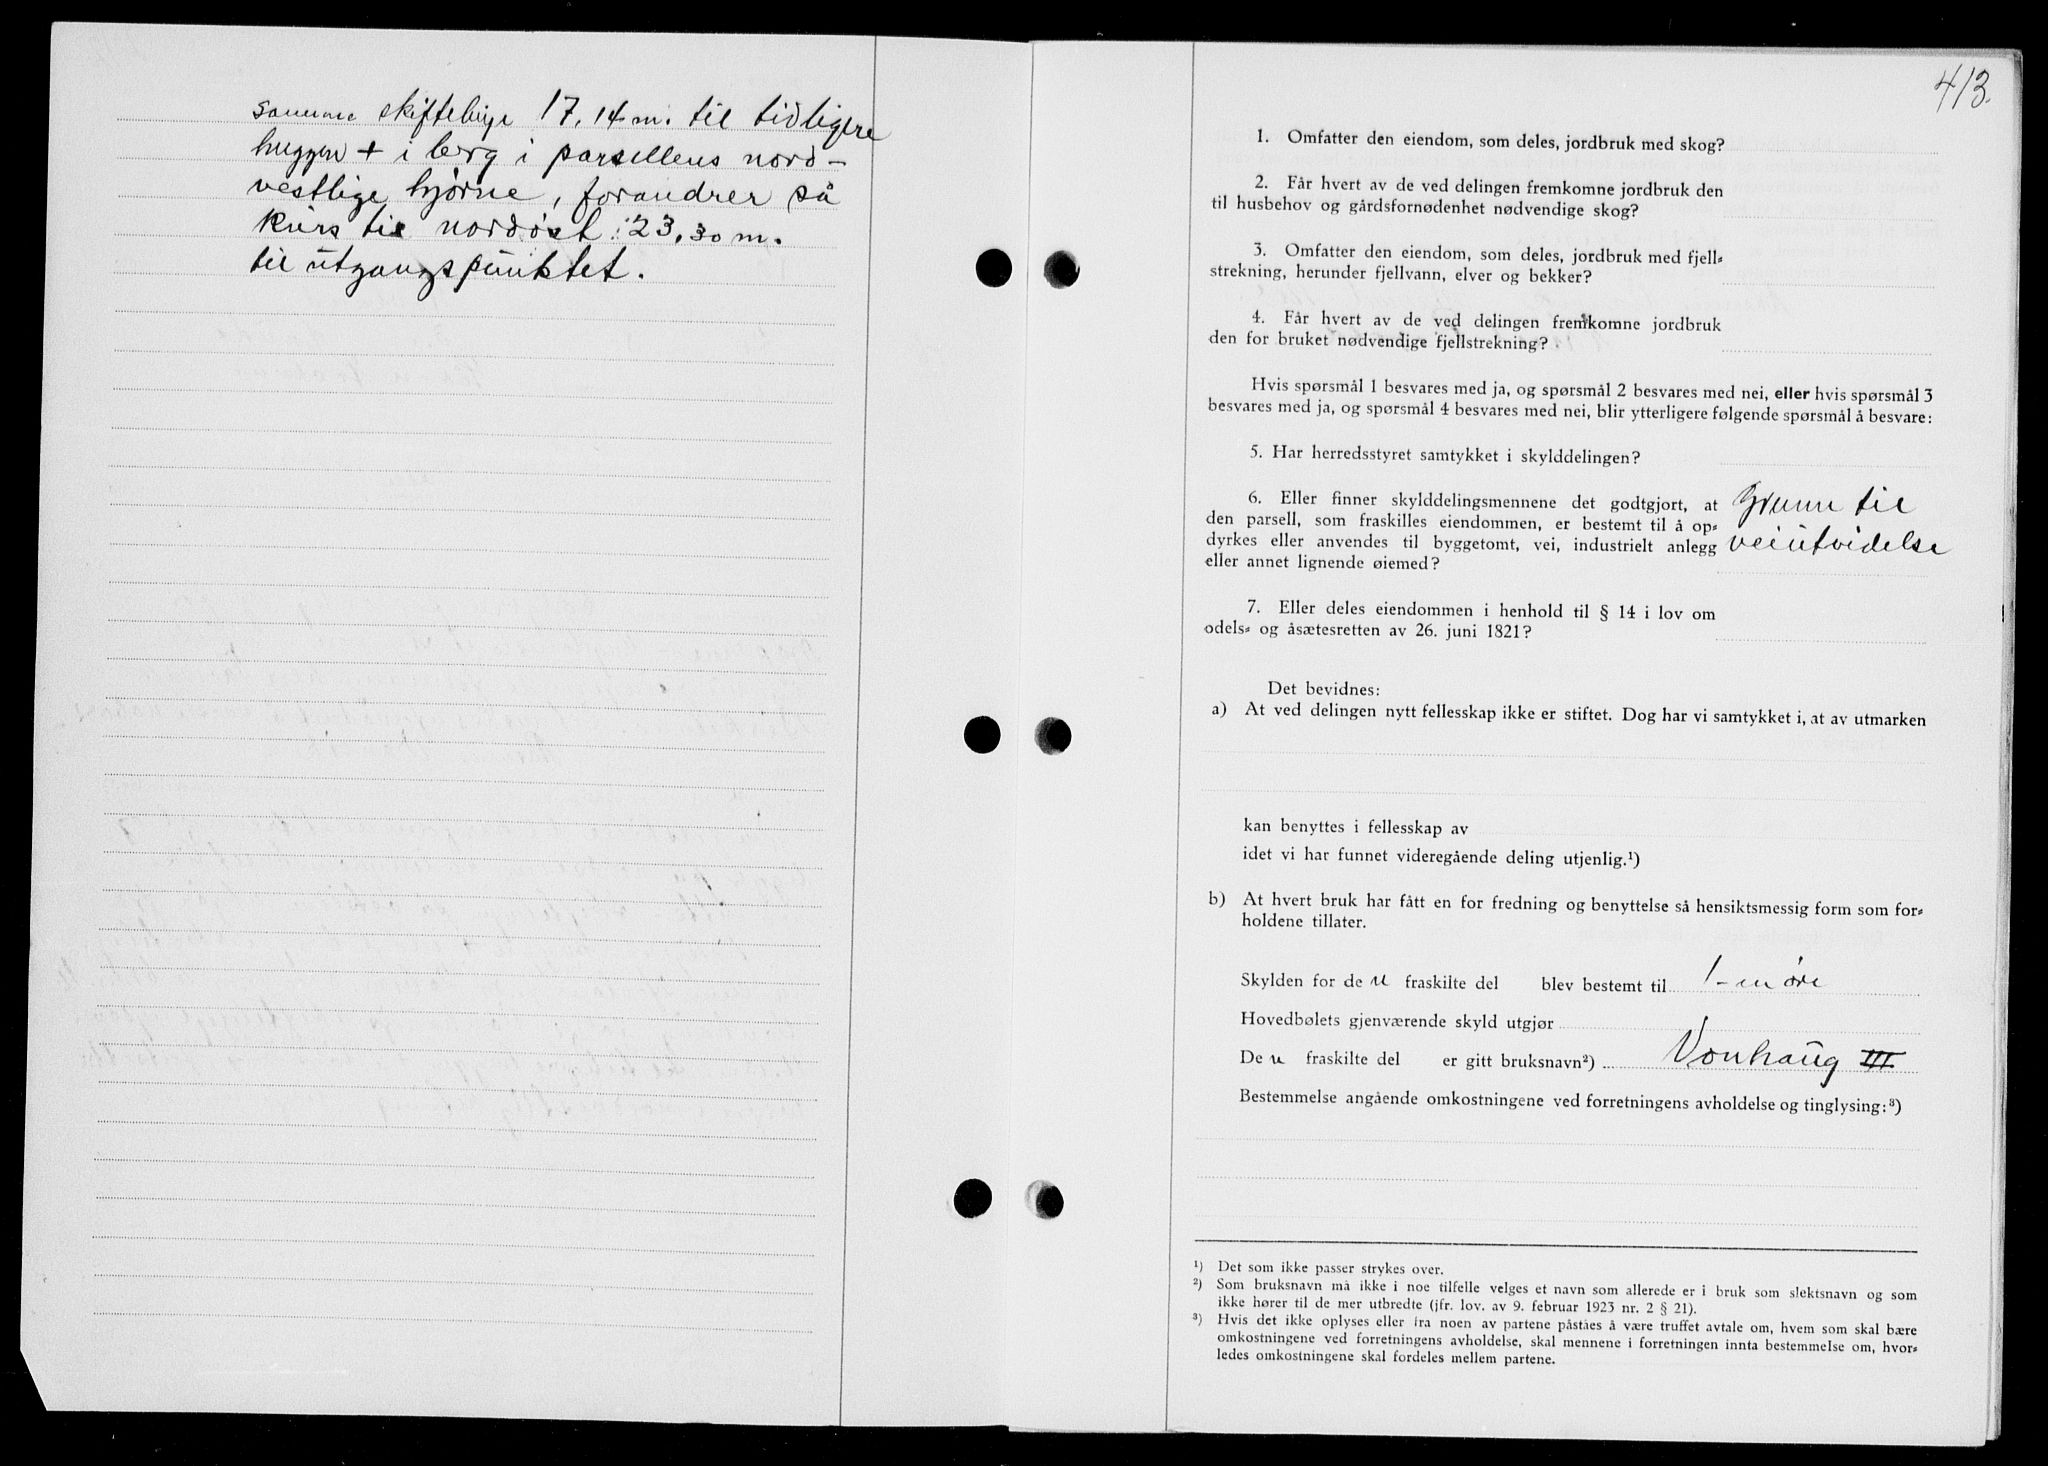 samme skiftelinje 17,14 m. til tidligere
huggen + i berg i parsellens nord-
vestlige hjørne, forandrer så
kurs til nordøst 23,30 m.
til utgangspunktet.
413.
1. Omfatter den eiendom, som deles, jordbruk med skog?
2. Får hvert av de ved delingen fremkomne jordbruk den
til husbehov og gårdsfornødenhet nødvendige skog?
3. Omfatter den eiendom, som deles, jordbruk med fjell-
strekning, herunder fjellvann, elver og bekker?
4. Får hvert av de ved delingen fremkomne jordbruk
den for bruket nødvendige fjellstrekning?
Hvis spørsmål 1 besvares med ja, og spørsmål 2 besvares med nei, eller hvis spørsmål 3
besvares med ja, og spørsmål 4 besvares med nei, blir ytterligere følgende spørsmål å besvare:
5. Har herredsstyret samtykket i skylddelingen?
6. Eller finner skylddelingsmennene det godtgjort, at
den parsell, som fraskilles eiendommen, er bestemt til å op-
dyrkes eller anvendes til byggetomt, vei, industrielt anlegg
eller annet lignende øiemed?
Grunn til
veiutvidelse
7. Eller deles eiendommen i henhold til § 14 i lov om
odels- og åsætesretten av 26. juni 1821?
Det bevidnes:
a) At ved delingen nytt fellesskap ikke er stiftet. Dog har vi samtykket i, at av utmarken
kan benyttes i fellesskap av
idet vi har funnet videregående deling utjenlig.¹)
b) At hvert bruk har fått en for fredning og benyttelse så hensiktsmessig form som for-
holdene tillater.
Skylden for de n fraskilte del blev bestemt til 1 - en øre
Hovedbølets gjenværende skyld utgjør
De n fraskilte del er gitt bruksnavn²) Vonhaug III
Bestemmelse angående omkostningene ved forretningens avholdelse og tinglysing:³)
¹) Det som ikke passer strykes over.
²) Som bruksnavn må ikke i noe tilfelle velges et navn som allerede er i bruk som slektsnavn og som
ikke hører til de mer utbredte (jfr. lov. av 9. februar 1923 nr. 2 § 21).
³) Hvis det ikke oplyses eller fra noen av partene påståes å være truffet avtale om, hvem som skal bære
omkostningene ved forretningens avholdelse, skal mennene i forretningen innta bestemmelse om, hvor-
ledes omkostningene skal fordeles mellem partene.